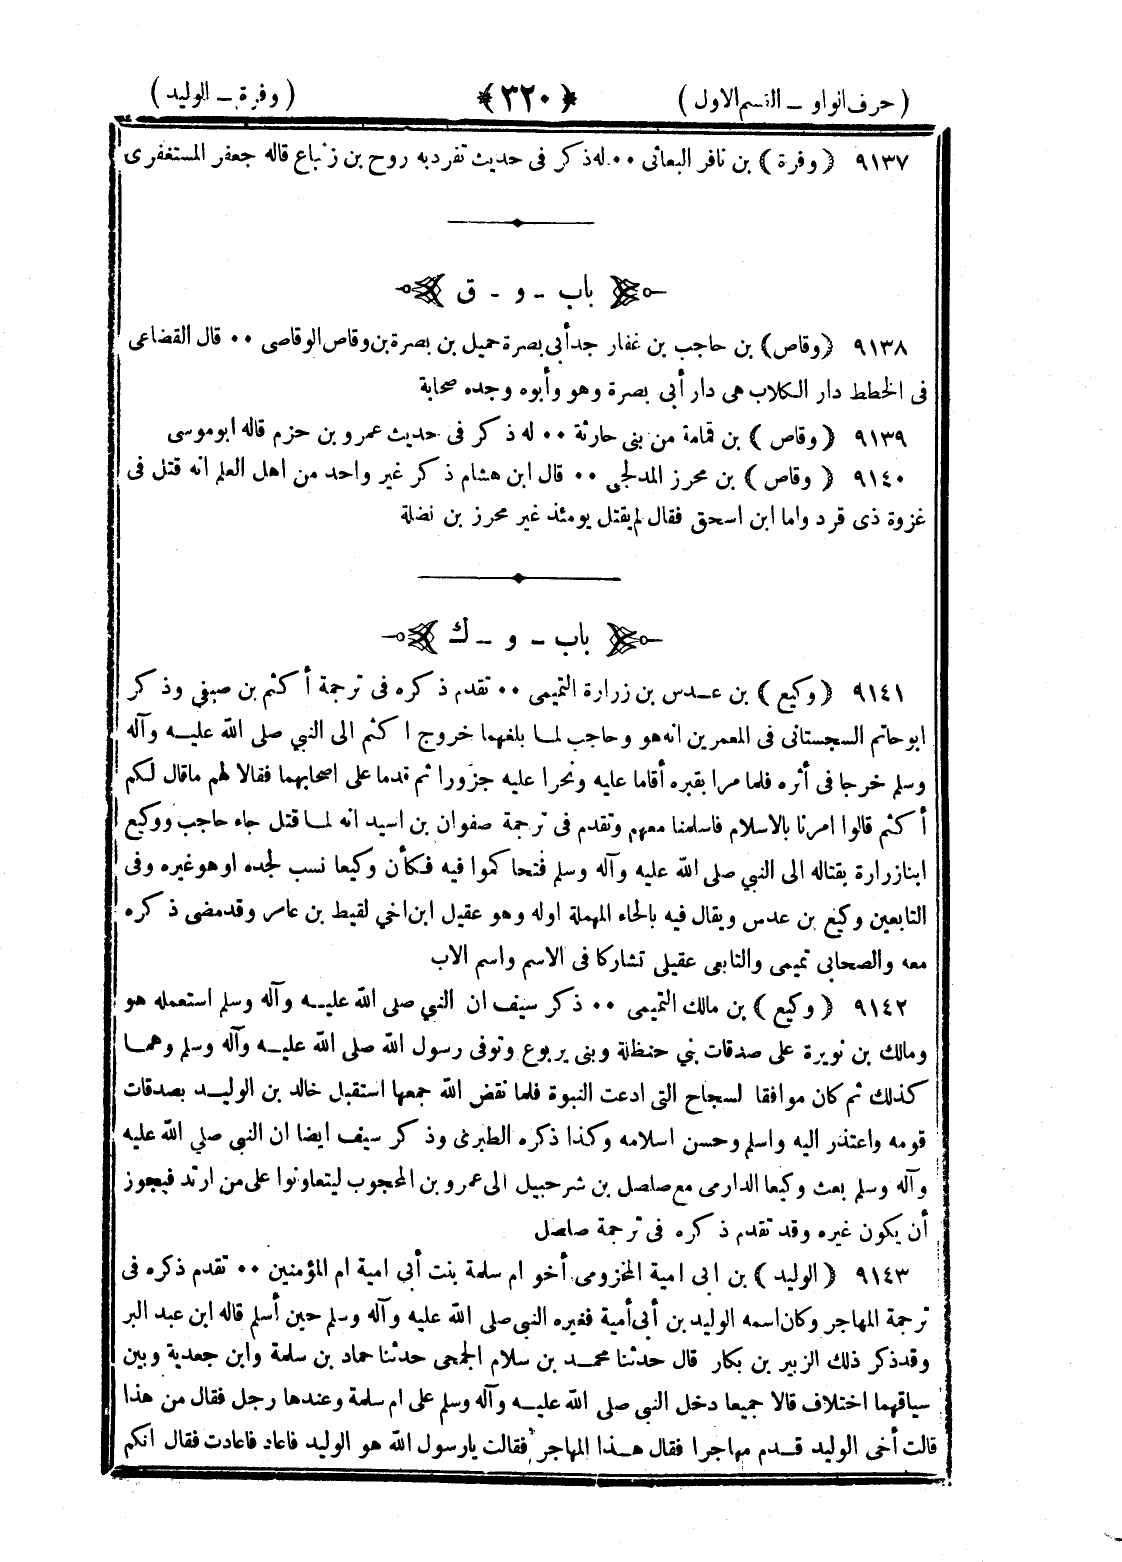 ( حرف الواو ــ القسم الاول ) ﴿ ٣٢٠ ﴾ ( وفرة ــ الوليد )
٩١٣٧ ( وفرة ) بن نافر البعاثى ٠٠ له ذكر فى حديث تفرد به روح بن زنباع قاله جعفر المستغفرى
باب ـ و ـ ق
٩١٣٨ ( وقاص ) بن حاجب بن غفار جد أبى بصرة حميل بن بصرة بن وقاص الوقاصى ٠٠ قال القضاعى
فى الخطط دار الكلاب هى دار أبى بصرة وهو وأبوه وجده صحابة
٩١٣٩ ( وقاص ) بن قمامة من بنى حارثة ٠٠ له ذكر فى حديث عمرو بن حزم قاله ابوموسى
٩١٤٠ ( وقاص ) بن محرز المدلجى ٠٠ قال ابن هشام ذكر غير واحد من اهل العلم انه قتل فى
غزوة ذى قرد واما ابن اسحق فقال لم يقتل يومئذ غير محرز بن نضلة
باب ـ و ـ ك
٩١٤١ ( وكيع ) بن عدس بن زرارة التميمى ٠٠ تقدم ذكره فى ترجمة أكثم بن صيفي وذكر
ابوحاتم السجستانى فى المعمرين انه هو وحاجب لما بلغهما خروج اكثم الى النبي صلى الله عليه وآله
وسلم خرجا فى أثره فلما مرا بقبره أقاما عليه ونحرا عليه جزورا ثم قدما على اصحابهما فقالا لهم ماقال لكم
أكثم قالوا امرنا بالاسلام فاسلمنا معهم وتقدم فى ترجمة صفوان بن اسيد انه لما قتل جاء حاجب ووكيع
ابنا زرارة بقتاله الى النبي صلى الله عليه وآله وسلم فتحاكموا فيه فكأن وكيعا نسب لجده او هو غيره وفى
التابعين وكيع بن عدس ويقال فيه بالحاء المهملة اوله وهو عقيل ابن اخي لقيط بن عامر وقدمضى ذكره
معه والصحابى تميمى والتابعى عقيلى تشاركا فى الاسم واسم الاب
٩١٤٢ ( وكيع ) بن مالك التميمى ٠٠ ذكر سيف ان النبي صلى الله عليه وآله وسلم استعمله هو
ومالك بن نويرة على صدقات بني حنظلة وبنى يربوع وتوفى رسول الله صلى الله عليه وآله وسلم وهما
كذلك ثم كان موافقا لسجاح التى ادعت النبوة فلما نقض الله جمعها استقبل خالد بن الوليد بصدقات
قومه واعتذر اليه واسلم وحسن اسلامه وكذا ذكره الطبرى وذكر سيف ايضا ان النبي صلى الله عليه
وآله وسلم بعث وكيعا الدارمى مع صلصل بن شرحبيل الى عمرو بن المحجوب ليتعاونوا على من ارتد فيجوز
أن يكون غيره وقد تقدم ذكره فى ترجمة صلصل
٩١٤٣ ( الوليد ) بن ابى امية المخزومى أخو ام سلمة بنت أبي امية ام المؤمنين ٠٠ تقدم ذكره فى
ترجمة المهاجر وكان اسمه الوليد بن أبى أمية فغيره النبى صلى الله عليه وآله وسلم حين أسلم قاله ابن عبد البر
وقدذكر ذلك الزبير بن بكار قال حدثنا محمد بن سلام الجمحى حدثنا حماد بن سلمة وابن جعدية وبين
سياقهما اختلاف قالا جميعا دخل النبى صلى الله عليه وآله وسلم على ام سلمة وعندها رجل فقال من هذا
قالت أخى الوليد قدم مهاجرا فقال هذا المهاجر فقالت يارسول الله هو الوليد فاعاد فاعادت فقال انكم